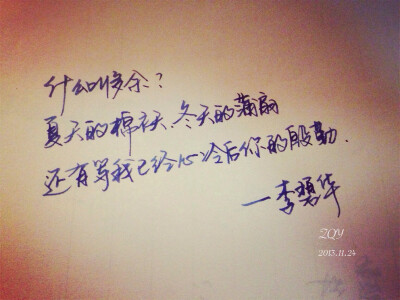 什么叫多余？
夏天的棉衣、冬天的蒲扇
还有等我已经心冷后你的殷勤.
—李碧华
ZQY
2013.11.24